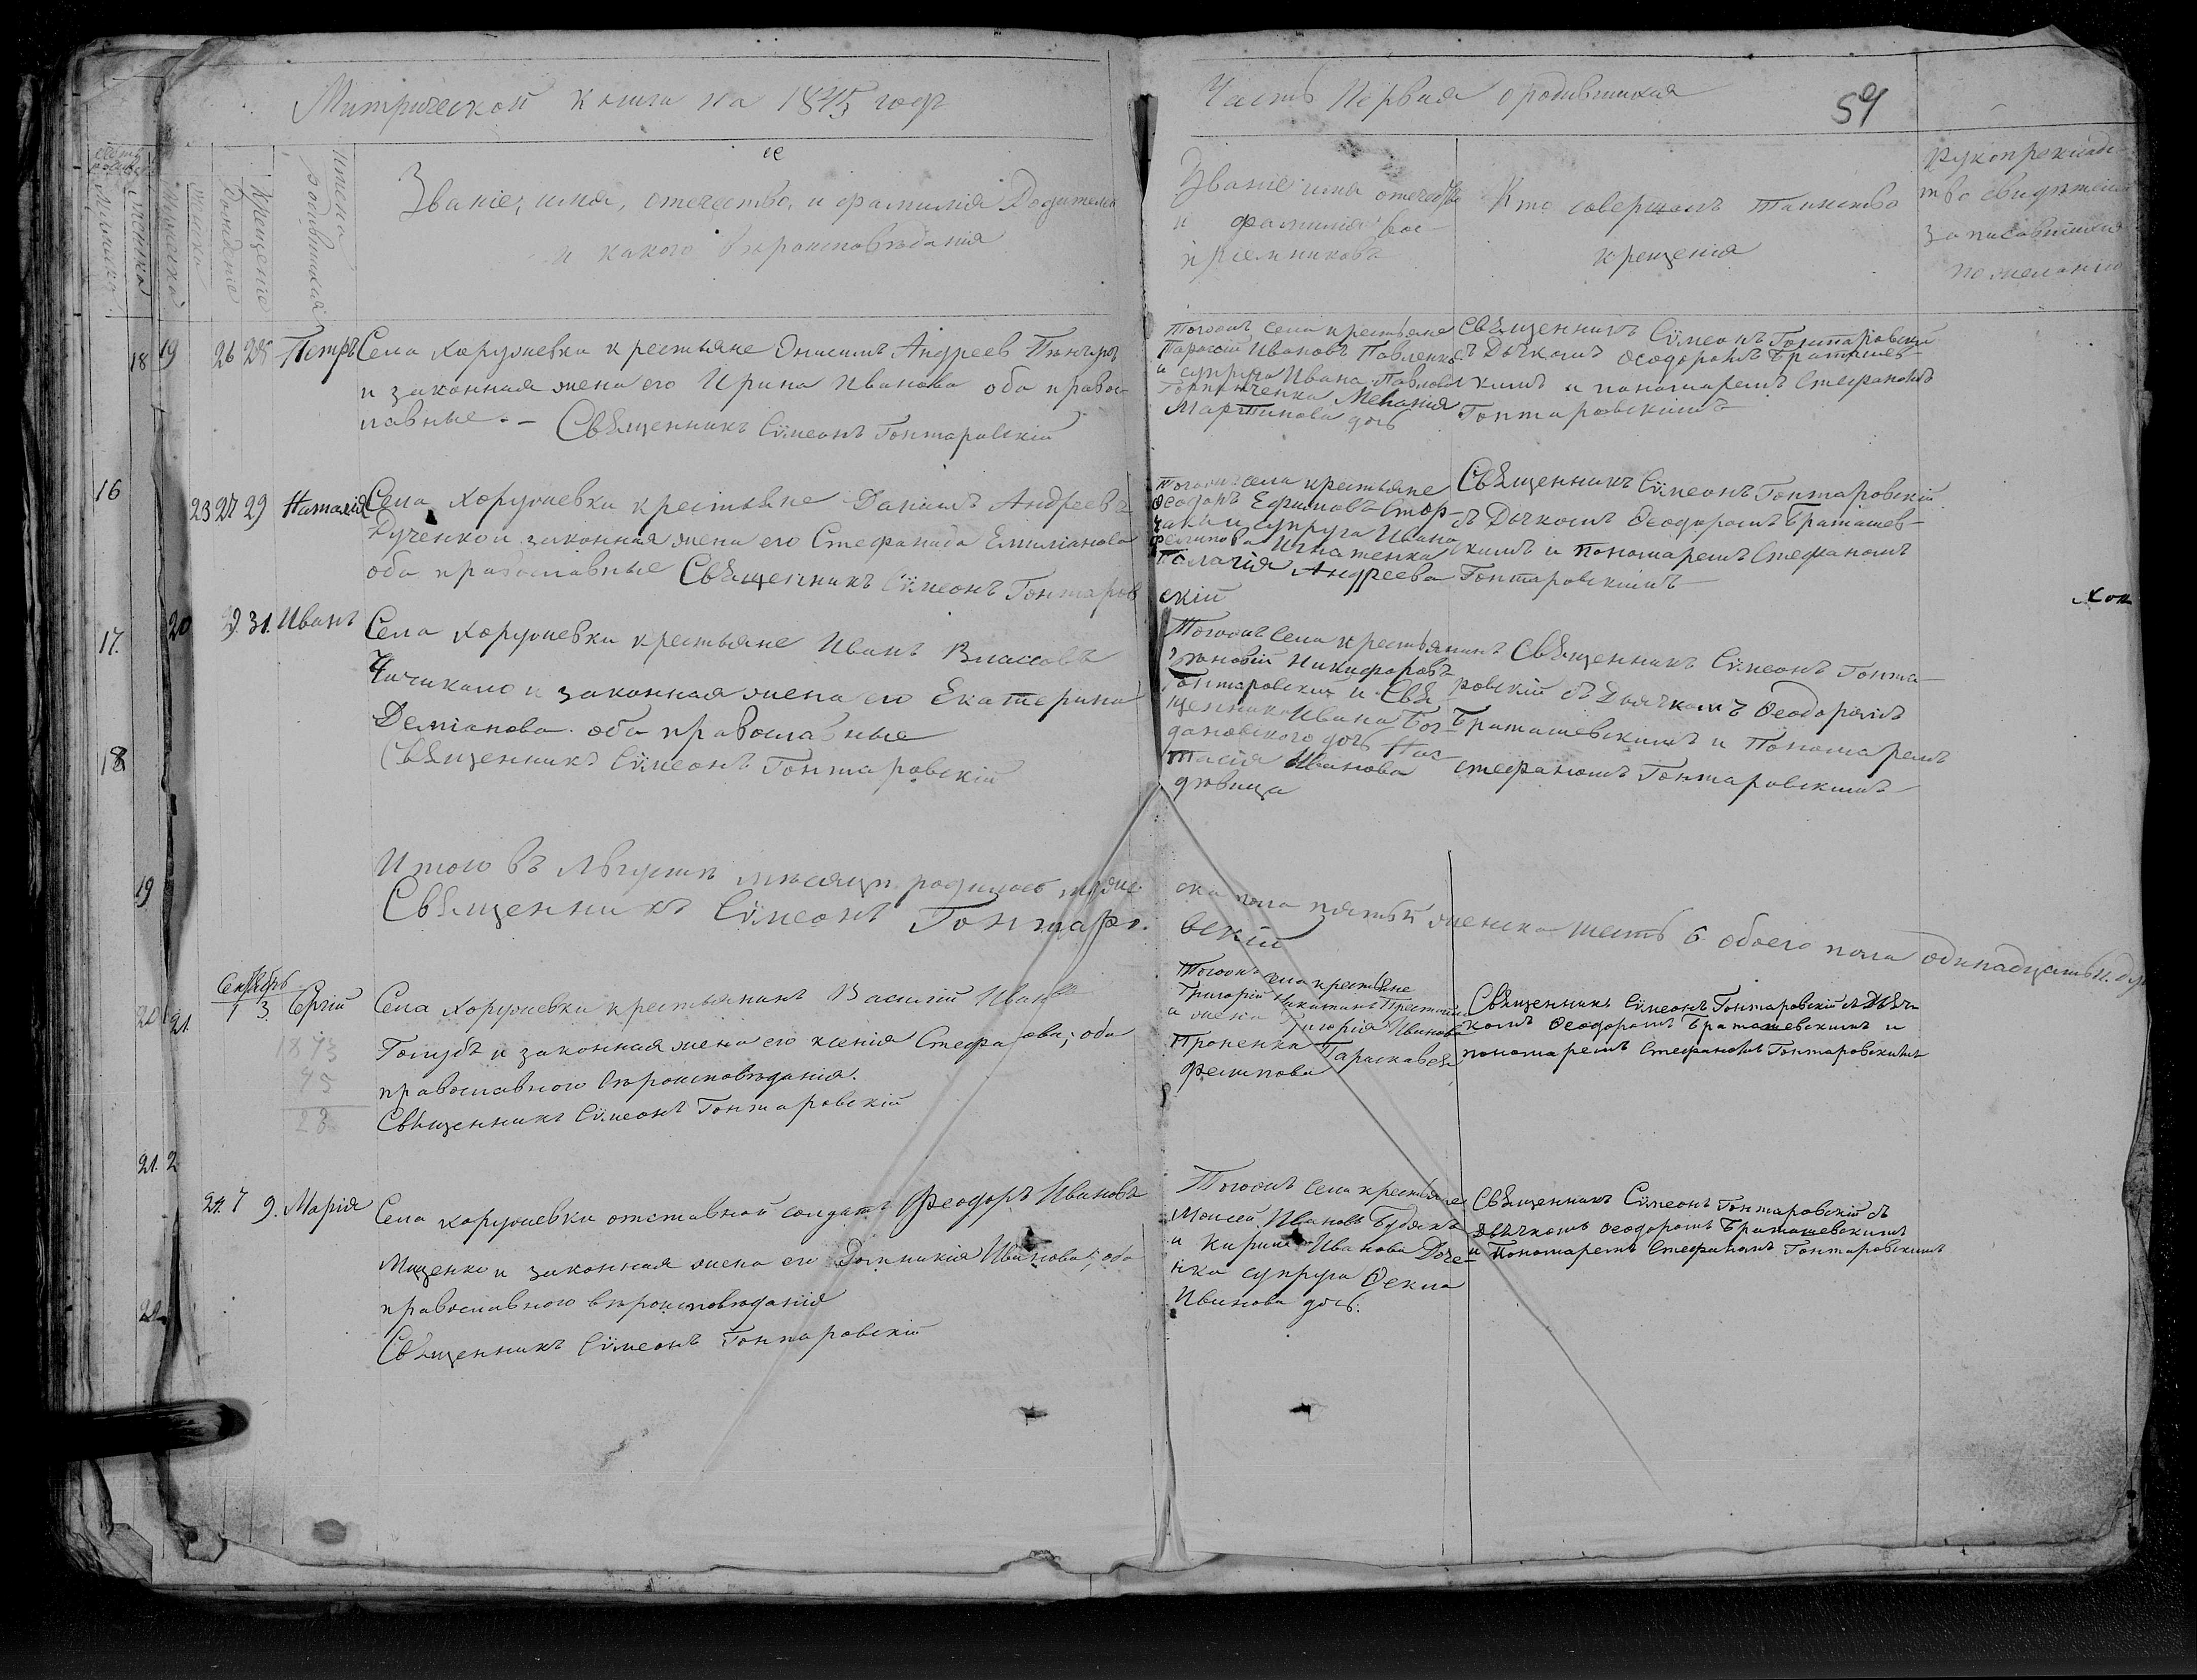 Метрической книги на 1845 годъ
Часть Первая о родившихся
59
Званіе, имя, отечество, и фамилія Родителей
и какого вѣроисповѣданія
Имена родившихся
Крещеніе
Званіе имя отечество
и фамилія вос-
пріемниковъ
Кто совершалъ таинство
крещенія
Рукоприкладс-
тво свидѣтелей
записавшихся
по желанію
18 19 26 28 Петръ
Села Коружевки крестьяне Онисимъ Андреевъ
и законная жена его Ирина Иванова оба правос-
лавные. – Священникъ Сѵмеонъ Гонтаровскій
Тогожъ села крестьяне
Тарасій Ивановъ Павленко
и супруга Ивана Павлова
Меланія
Мартинова дочь
Священникъ Сѵмеонъ Гонтаровскій
съ Дьячкомъ Ѳеодоромъ Браташев-
скимъ и пономаремъ Стефаномъ
Гонтаровскимъ
16
23 27 29 Наталія
Села Коружевки крестьяне Даніилъ Андреевъ
Рученко и законная жена его Стефанида Емиліанова
оба православные Священникъ Сѵмеонъ Гонтаров
скій
Тогожъ села крестьяне
Ѳеодоръ Ефимовъ Стор-
чакъ и супруга Ивана
Филипова Игнатенка
Пелагія Андреева
Священникъ Сѵмеонъ Гонтаровскій
съ Дьячкомъ Ѳеодоромъ Браташев-
скимъ и Пономаремъ Стефаномъ
Гонтаровскимъ
17. 20 31. Иванъ
Села Коружевки крестьяне Иванъ Власовъ
Чичикало и законная жена его Екатерина
Деміанова оба православные
Священникъ Сѵмеонъ Гонтаровскій
Тогожъ села крестьянинъ
Никифоровъ
Гонтаровскій и Свя
щенника Ивана Бог-
дановского дочь Нас
тасія Иванова
дѣвица
Священникъ Сѵмеонъ Гонта-
ровскій съ Дьячкомъ Ѳеодоромъ
Браташевскимъ и Пономаремъ
Стефаномъ Гонтаровскимъ
18
19
Итого въ Августѣ мѣсяцѣ родилось мужес-
ка пола пять 5 женска шесть 6 обоего пола одинадцать 11. душ
Священникъ Сѵмеонъ Гонтаро.
вскій
Сентябрь
20 21. 1 3. Сергій
Села Коружевки крестьянинъ Василій Ивановъ
Голубъ и законная жена его Ксенія Стефанова; оба
православного вѣроисповѣданія.
Священникъ Сѵмеонъ Гонтаровскій
1873
45
28
Тогожъ села крестьяне
Григорій Никитинъ
и жена Григорія Иванова
Проненка Параскавея
Филипова
Священникъ Сѵмеонъ Гонтаровскій съ Дьяч-
комъ Ѳеодоромъ Браташевскимъ и
пономаремъ Стефаномъ Гонтаровскимъ
21. 2
24. 7 9. Марія
Села Коружевки отставной солдатъ Феодоръ Ивановъ
Мищенко и законная жена его Домникія Иванова; оба
православного вѣроисповѣданія
Священникъ Сѵмеонъ Гонтаровскій
Тогожъ села крестьяне
Моисей Ивановъ
и Кирила Иванова
супруга Ѳекла
Иванова дочь.
Священникъ Сѵмеонъ Гонтаровскій съ
Дьячкомъ Ѳеодоромъ Браташевскимъ
и Пономаремъ Стефаномъ Гонтаровскимъ
22